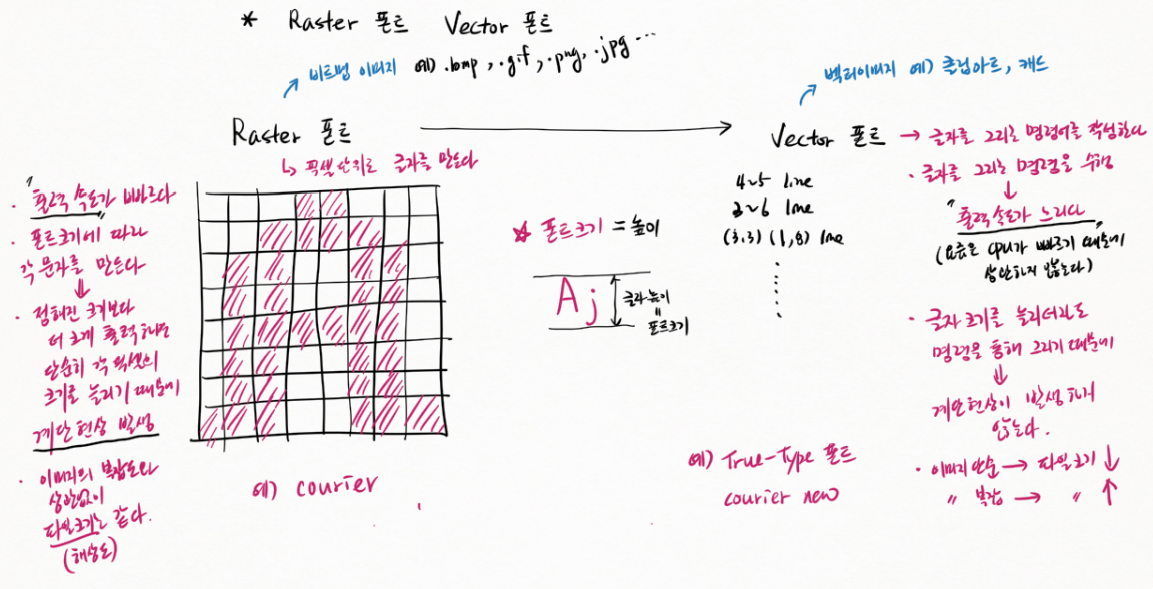 * Raster 폰트 Vector 폰트
비트맵 이미지 예) .bmp, .gif, .png, .jpg ...
벡터이미지 예) 클립아트, 캐드
Raster 폰트
Vector 폰트 → 글자를 그리는 명령어를 작성한다
↳ 픽셀단위로 글자를 만든다
· "출력 속도가 빠르다
· 폰트크기에 따라
각 문자를 만든다
⇓
· 정해진 크기보다
더 크게 출력하면
단순히 각 픽셀의
크기를 늘리기 때문에
계단현상 발생
· 이미지의 복잡도와
상관없이
파일크기는 같다.
(해상도)
예) courier
☆ 폰트크기 = 높이
Aj
글자높이
=
폰트크기
4~5 line
3~6 line
(3,3) (1,8) line
· 글자를 그리는 명령을 수행
↓
"출력속도가 느리다"
(요즘은 CPU가 빠르기 때문에
상관하지 않는다)
· 글자크기를 늘리더라도
명령을 통해 그리기 때문에
⇓
계단현상이 발생하지
않는다.
· 이미지단순 → 파일크기 ↓
" 복잡 → " ↑
예) True-Type 폰트
courier new